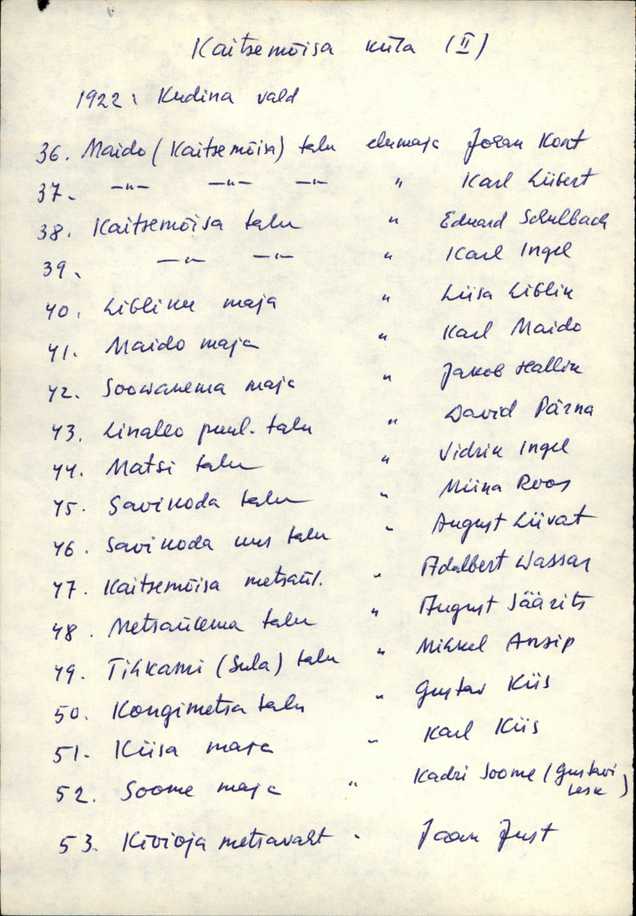 Kaitsemõisa küla (II)
1922: Kudina vald
36. Maido (Kaitsemõisa) talu elumaja Joosan Kont
37. —"— —"— —"— " Karl Liibert
38. Kaitsemõisa talu " Eduard Schulbach
39. —"— —"— " Karl Ingel
40. Libliku maja " Liisa Liblik
41. Maido maja " Karl Maido
42. Soowanema maja " Jakob Hallik
43. Linaleo puul. talu " David Pärna
44. Matsi talu " Vidrik Ingel
45. Savikoda talu " Miina Roos
46. Savikoda uus talu " August Liivat
47. Kaitsemõisa metsaül. " Adalbert Wassar
48. Metsaülema talu " August Säärits
49. Tihkami (Sula) talu " Mihkel Ansip
50. Kongimetsa talu " Gustav Kiis
51. Kiisa maja " Karl Kiis
52. Soome maja " Kadri Soome (Gustavi lesk)
53. Kivioja metsavaht " Jaan Just